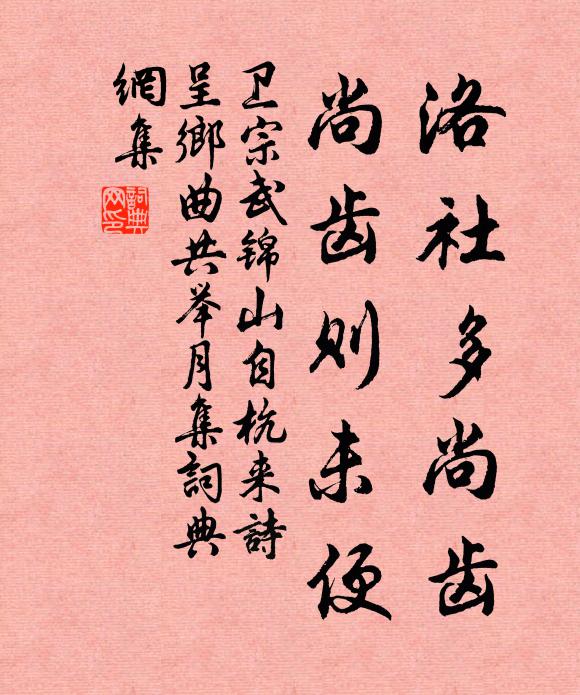 洛社多尚齿
尚齿则未便
卫宗武锦山自杭来詩
呈鄉曲共举月集詞典
網集
詞典
网印